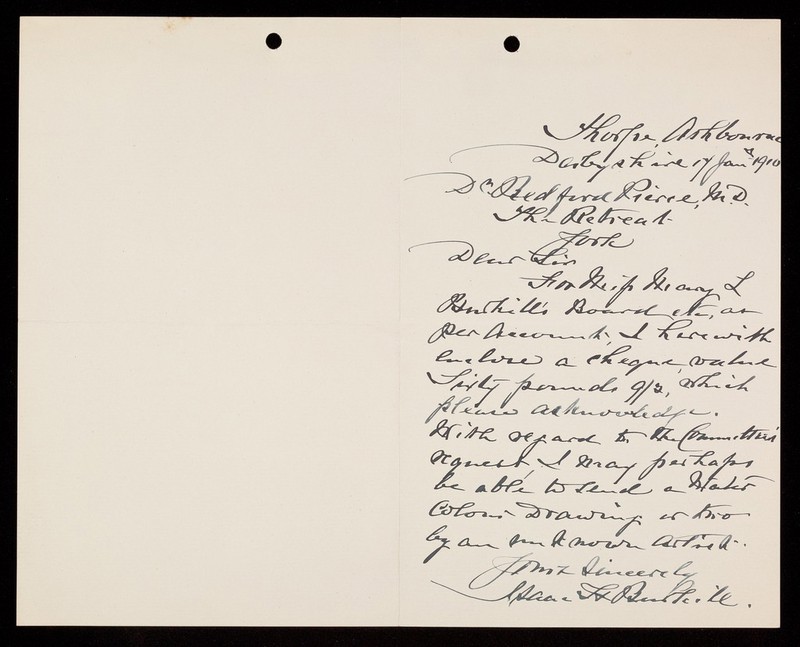 Thorpe, Ashbourne
Derbyshire 17 Jany 1910
Dr Bedford Pierce, M.D.
The Retreat
York
Dear Sir
For Miss Mary L
Burkill's Board etc, as
per Account, I herewith
enclose a cheque, value
Sixty pounds 9/2, which
please acknowledge.
With regard to the Committee's
request, I may perhaps
be able to send a Water
Colour Drawing or two
by an unknown artist.
Yours Sincerely
Isaac H Burkill.